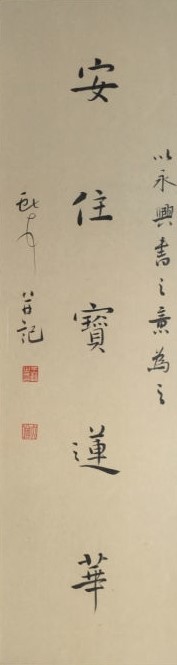 以永興書之意為之
安住寶蓮華
并記